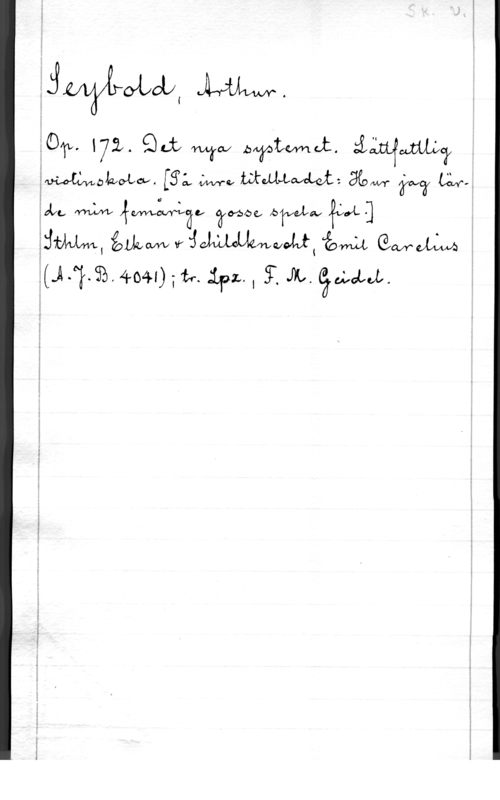 Sk. V.
Seybold, Arthur.
Op. 172. Det nya systemet. Lättfattlig
violinskola. [På inre titelbladet: Hur jag lär-
de min femårige gosse spela fiol.]
Sthlm, Elkan & Schildknecht, Emil Carelius
(A.J.B. 4041); tr. Lpz., F. M. Geidel.